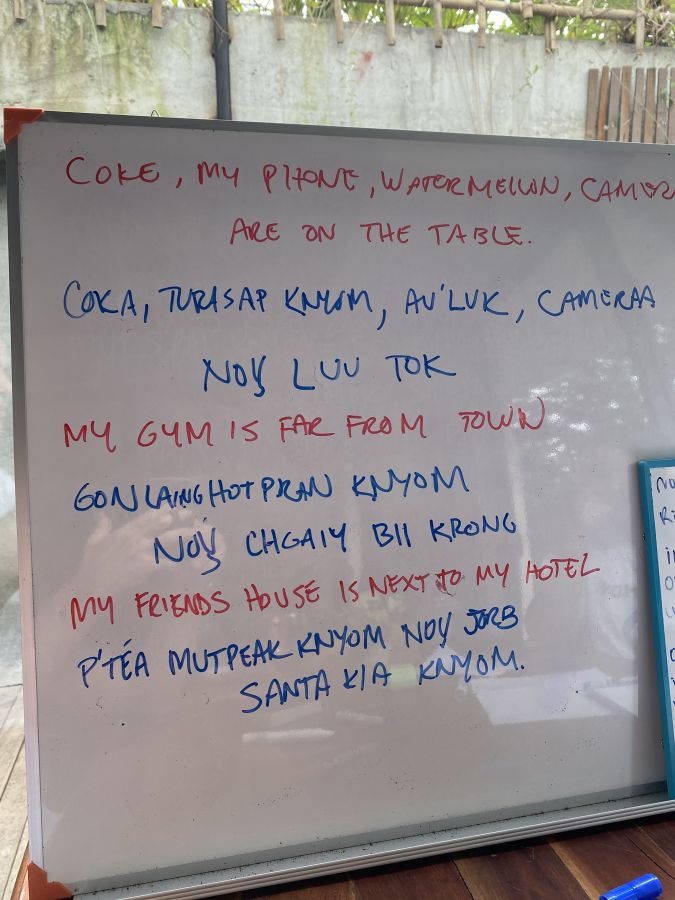 COKE, MY PHONE, WATERMELLON, CAMER
ARE ON THE TABLE.
COKA, TURASAP KNYOM, AU'LUK, CAMERAA
NOY LUU TOK
MY GYM IS FAR FROM TOWN
GONLAING HOT PRAN KNYOM
NOY CHGAIY BII KRONG
MY FRIENDS HOUSE IS NEXT TO MY HOTEL
P'TÉA MUTPEAK KNYOM NOY JORB
SANTA KIA KNYOM.